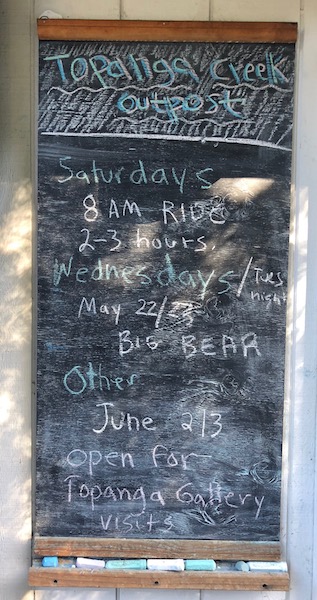 Topanga Creek
Outpost
Saturdays
8 AM RIDE
2-3 hours.
Wednesdays/Tues
night
May 22/23
BIG BEAR
Other
June 2/3
Open for
Topanga Gallery
visits